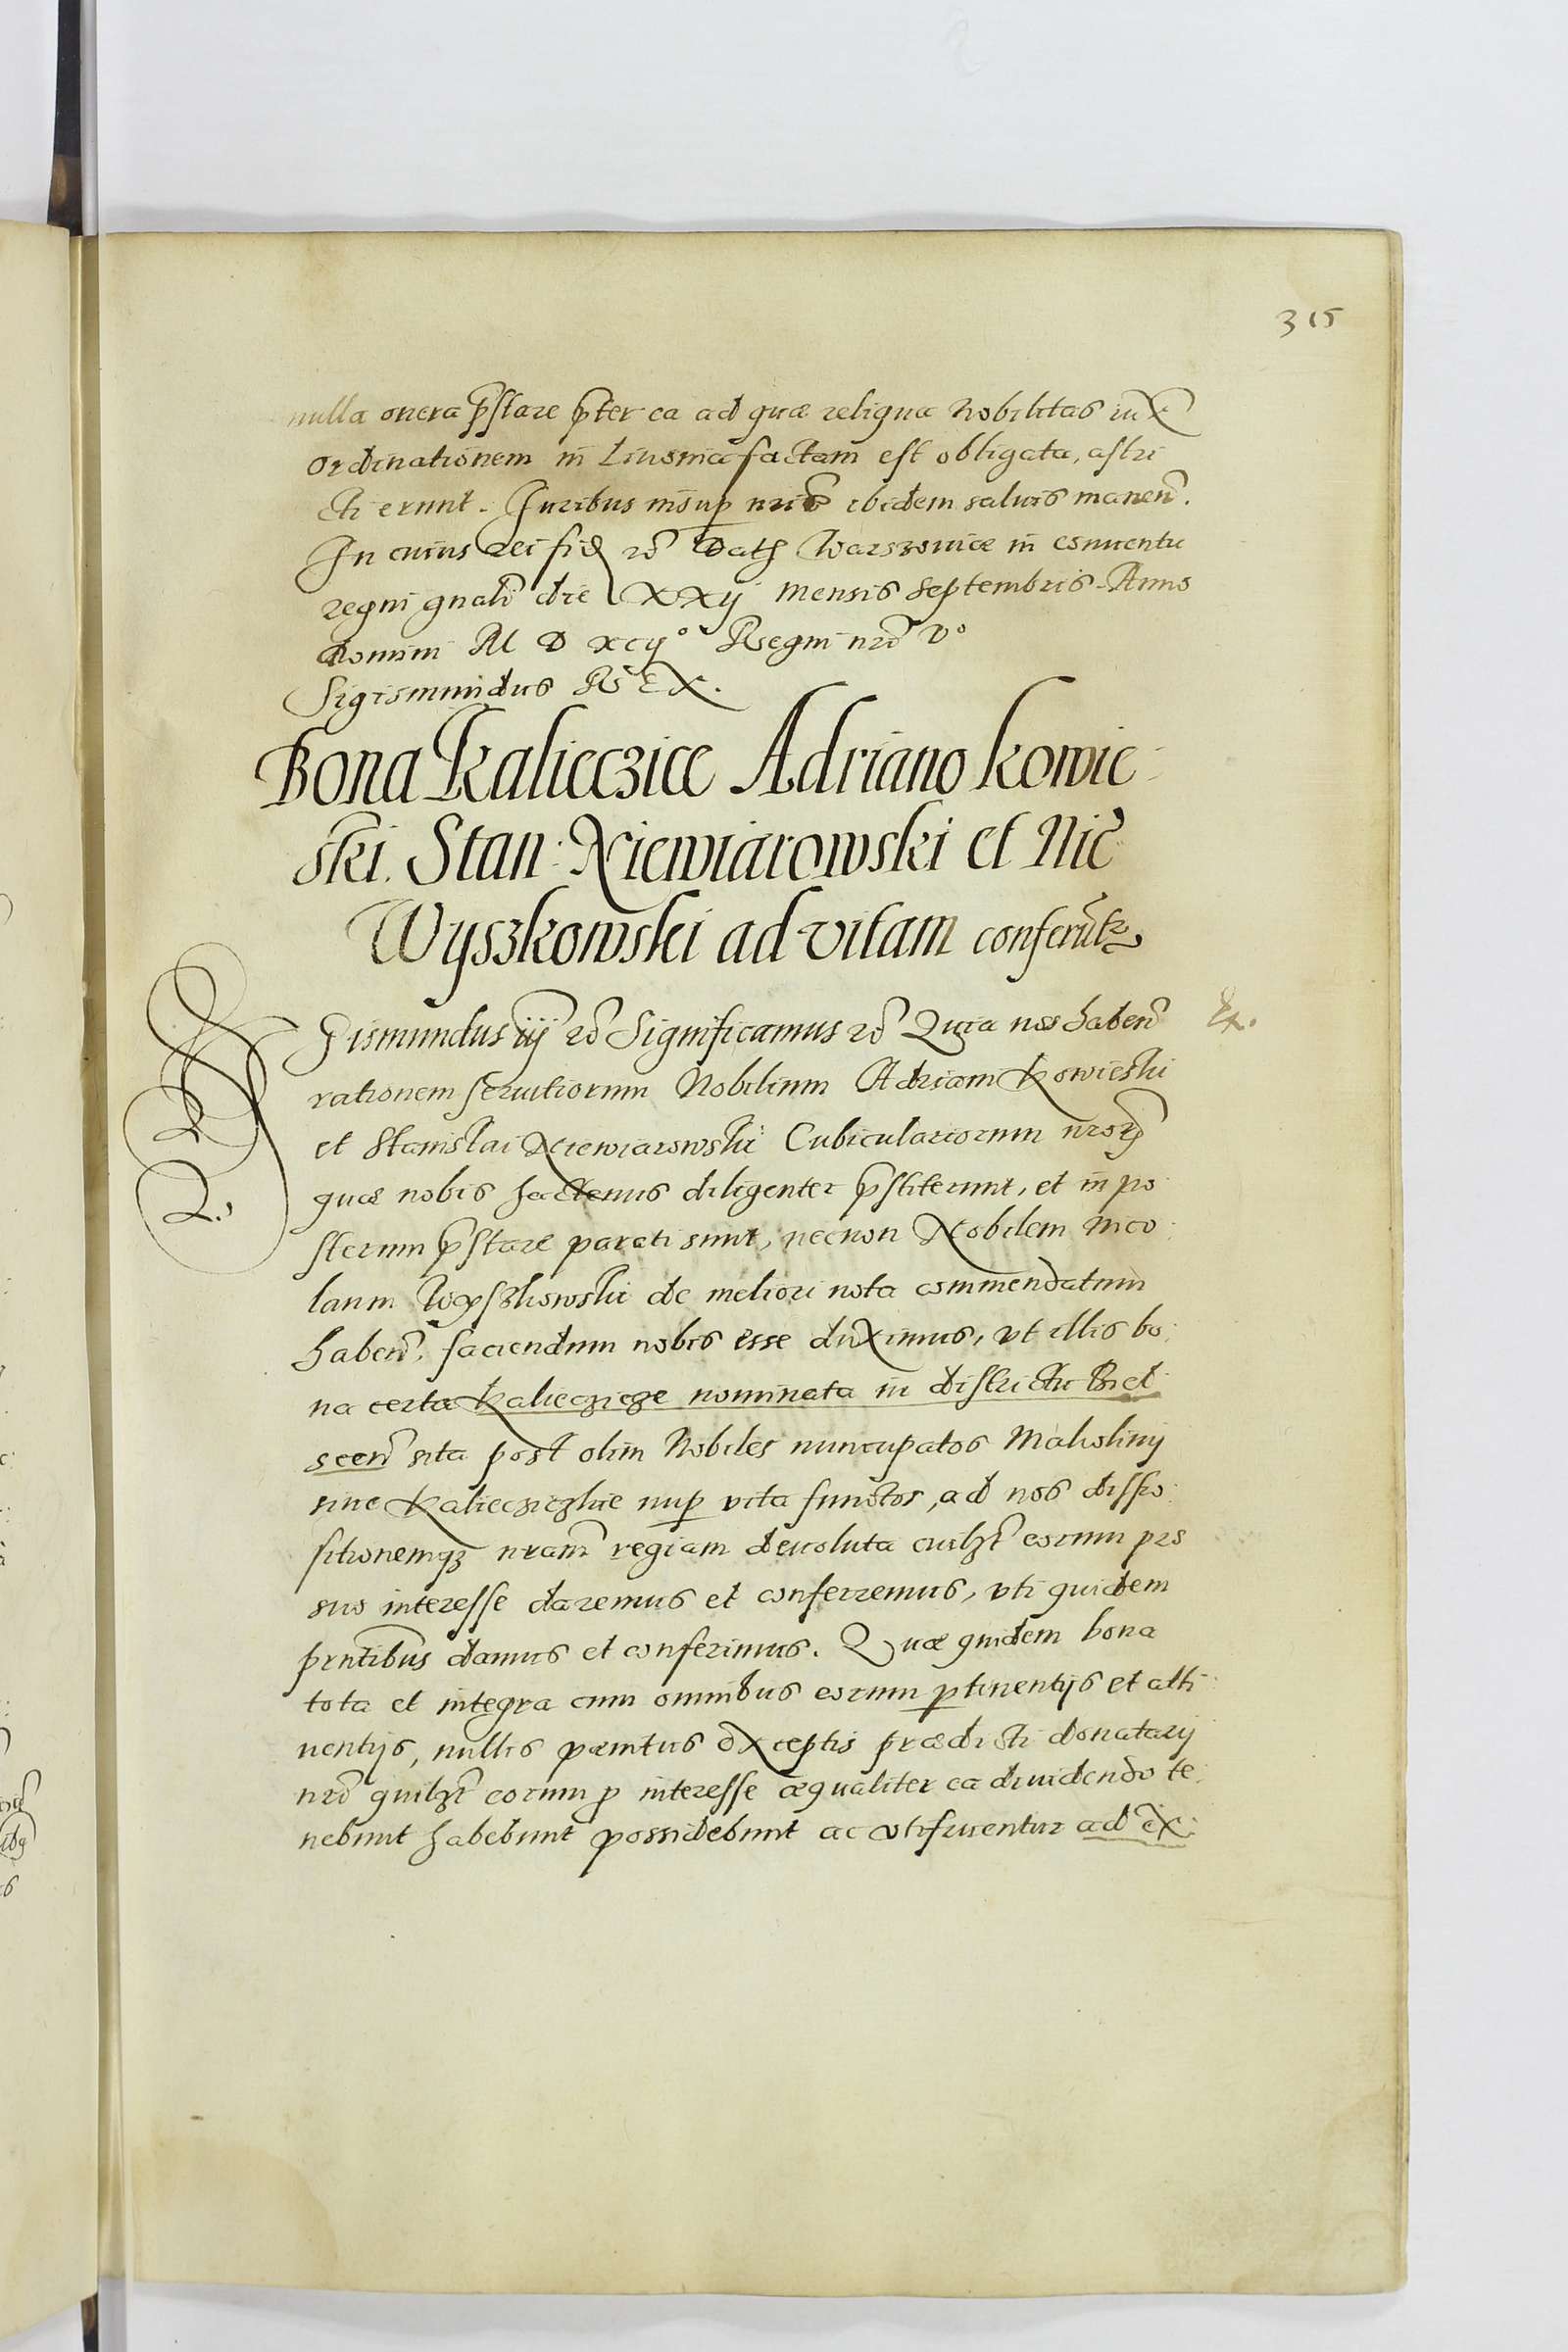 315
nulla onera p̃stare p̃ter ea ad quæ reliqua Nobilitas iux̃
ordinationem in Liuonia factam est obligata, astri
cti erunt. Iuribus insup nr̃is ibidem saluis maneñ.
In cuius rei fidẽ etc̃ Datẽ Warszouiæ in conuentu
regni gnali die XXIJ mensis Septembris Anno
domini M D XCIJ° Regni nr̃i V°
Sigismundus REX.
Bona Kalieczice Adriano Kowie-
ski. Stan: Niewiarowski et Nic̃
Wyszkowski ad vitam conferũtr
Sigismundus iij etc̃ Significamus etc̃ Quia nos habeñ
rationem seruitiorum Nobilium Adriani Kowieski
et Stanislai Niewiarowski Cubiculariorum nr̃orũ
quæ nobis hactenus diligenter p̃stiterunt, et in po
sterum p̃stare parati sunt, necnon Nobilem Nico
laum Wyszkowski de meliori nota commendatum
habeñ. faciendum nobis esse duximus, vt illis bo
na certa Kalieczicze nominata in districtu Biel
sceñ sita post olim Nobiles nuncupatos Makoliny
siue Kalieczizkie nup vita functos, ad nos dispo
sitionemq3 nram̃ regiam deuoluta cuilz̃t eorum pro
suo interesse daremus et conferremus, vti quidem
prntĩbus damus et conferimus. Quæ quidem bona
tota et integra cum omnibus eorum ptinentijs et atti
nentijs, nullis pænitus exceptis prædicti donatarij
nr̃i quilz̃t eorum p interesse æqualiter ea diuidendo te
nebunt habebunt possidebunt ac vtifruentur ad ex: